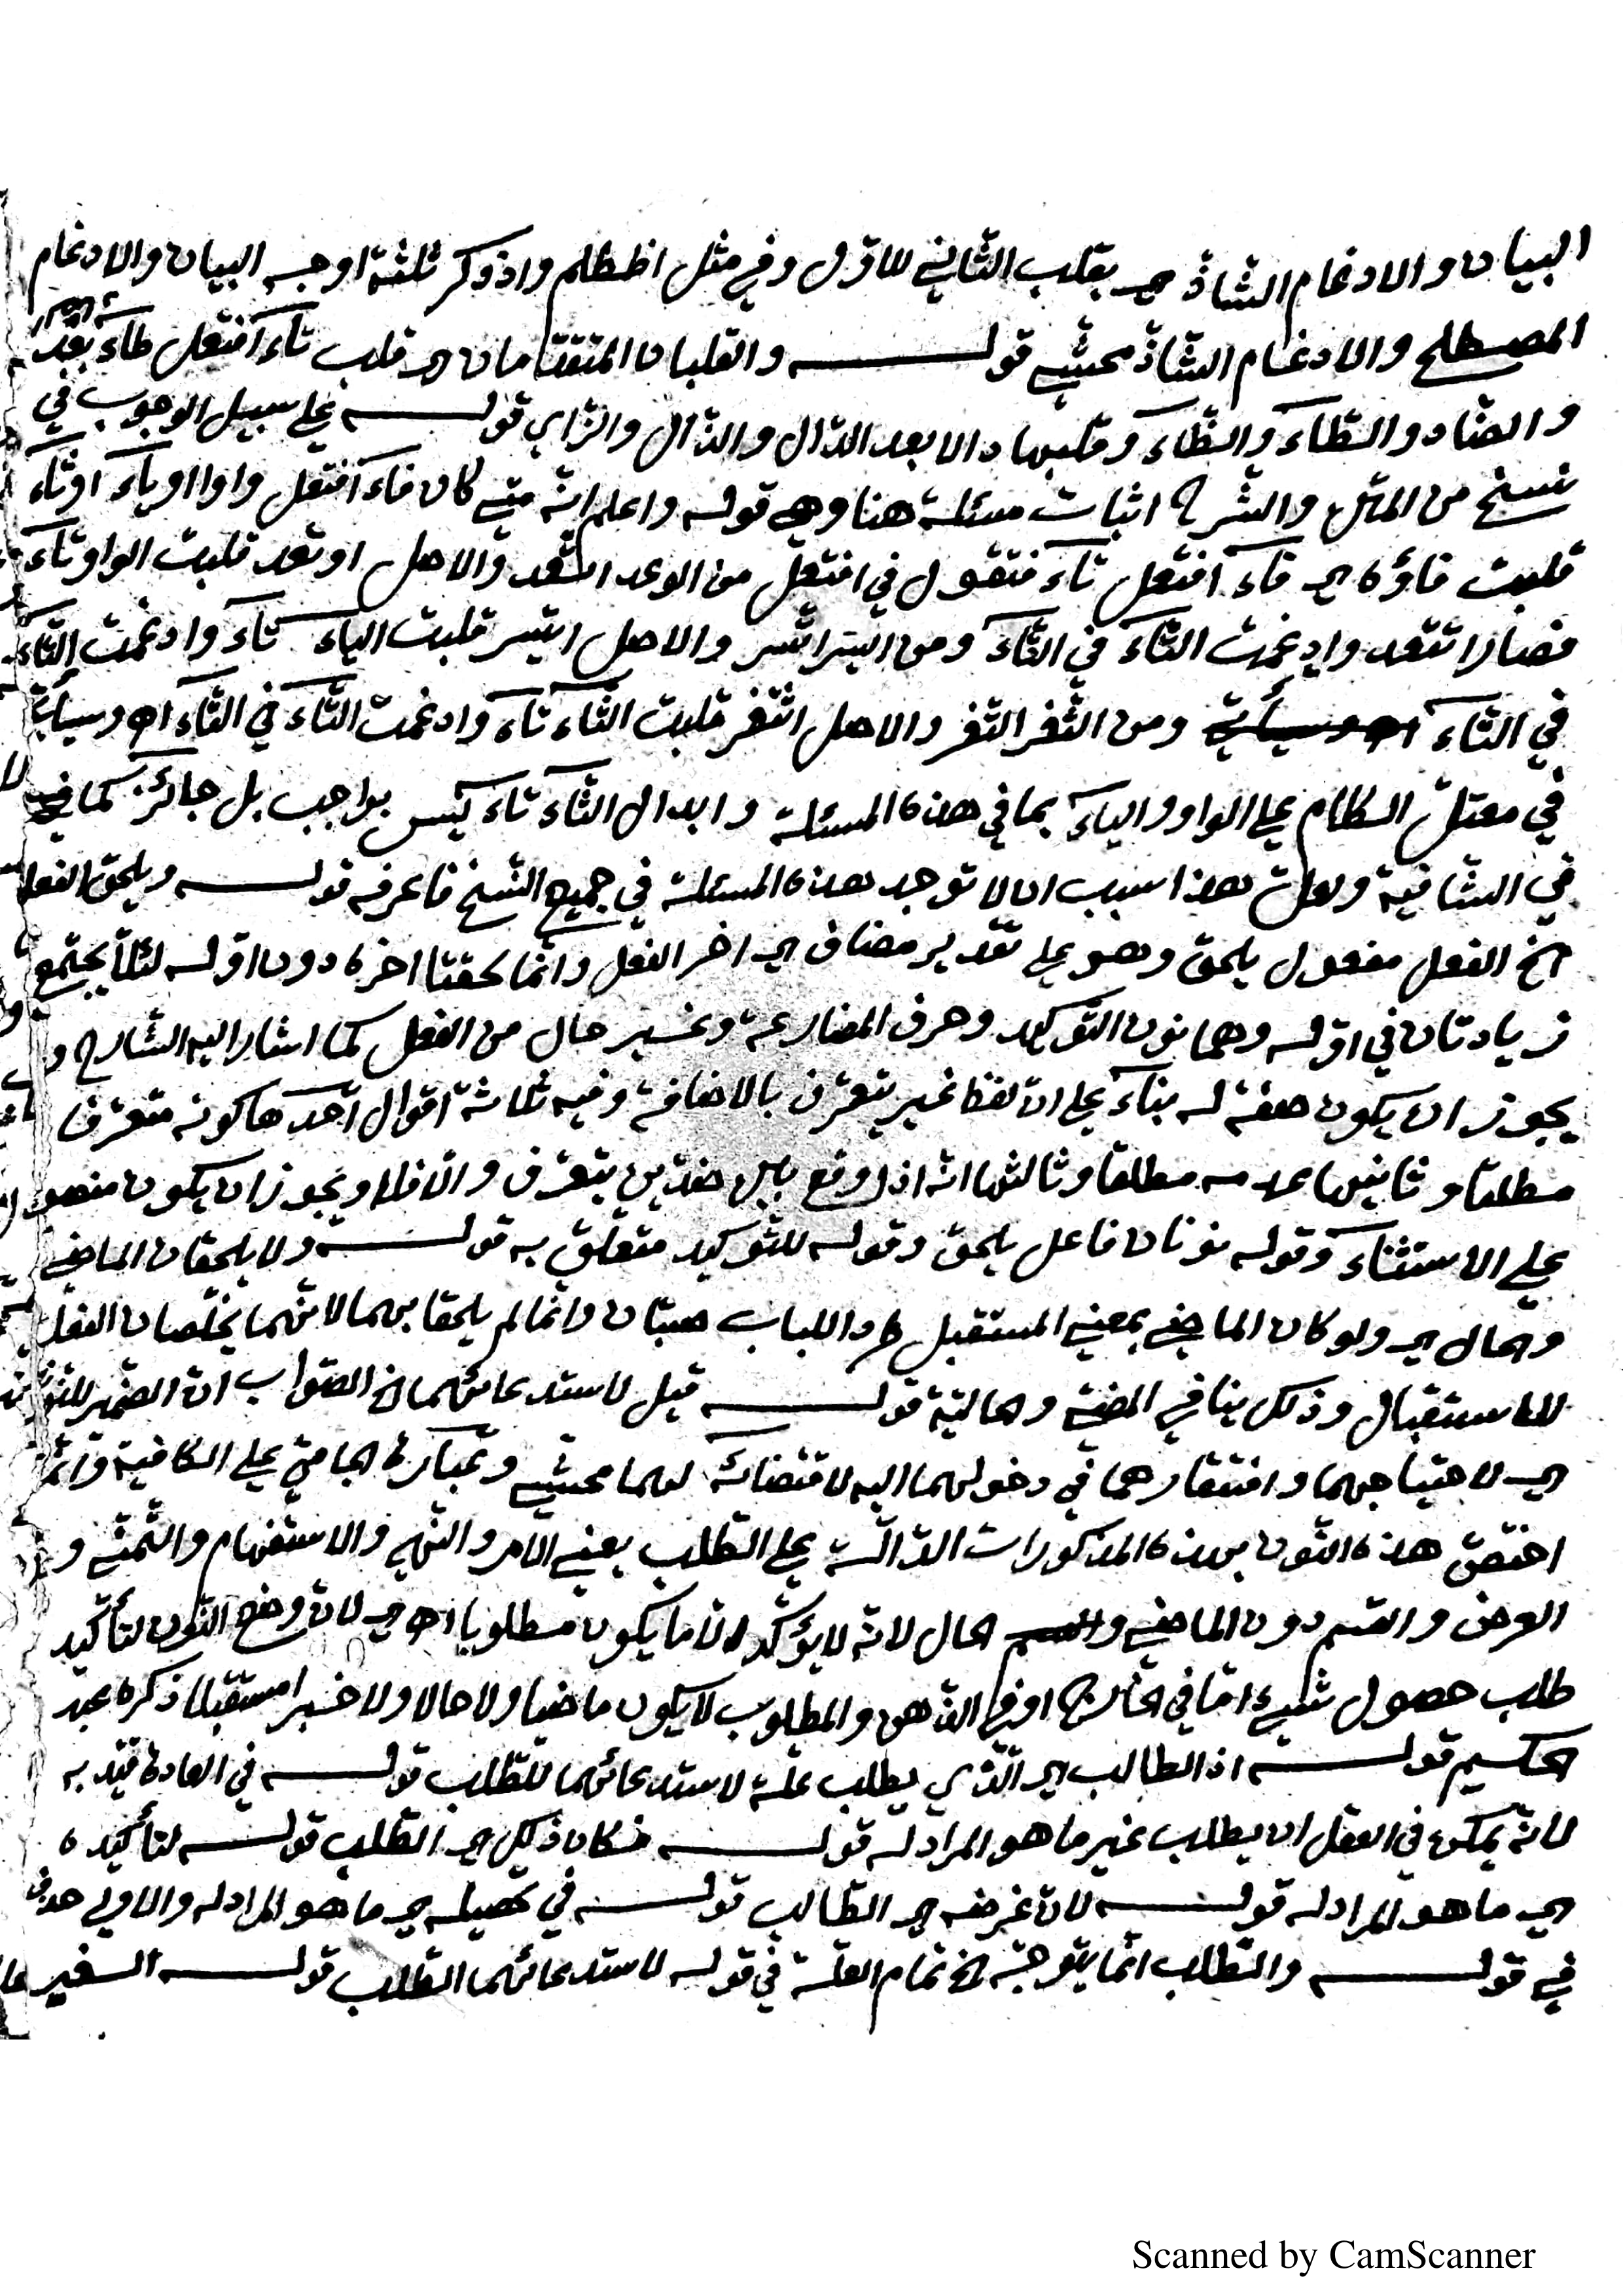 البيان والادغام الشاذ اي بقلب الثاني للاول وفي مثل اظطلم واذدكر ثلثة اوجه البيان والادغام
المصطلح والادغام الشاذ محشي قولــه والقلبان المتقدمان اي قلب تاء افتعل طاء بعد الصاد
والضاد والطاء والظاء وقلبها دالا بعد الدال والذال والزاي قولــه على سبيل الوجوب في
نسخ من المتن والشرح اثبات مسئلة هنا وهي قوله واعلم انه متى كان فاء افتعل واوا او ياء او ثاء
قلبت فاؤه اي فاء افتعل تاء فتقول في افتعل من الوعد اتعد والاصل اوتعد قلبت الواو تاء
فصار اتتعد وادغمت التاء في التاء ومن اليسر اتسر والاصل ايتسر قلبت الياء تاء وادغمت التاء
في التاء ومن الثغر اتغر والاصل اثتغر قلبت الثاء تاء وادغمت التاء في التاء اه وسيأتي
في معتل الكلام على الواو والياء بما في هذه المسئلة وابدال الثاء تاء ليس بواجب بل جائز كما
في الشافية ولعل هذا سبب ان لا توجد هذه المسئلة في جميع النسخ فاعرفه قولــه ويلحق الفعل
الخ الفعل مفعول يلحق وهو على تقدير مضاف اي اخر الفعل وانما لحقتا اخره دون اوله لئلا يجتمع
زيادتان في اوله وهما نون التوكيد وحرف المضارعة وغير حال من الفعل كما اشار اليه الشارح و
يجوز ان يكون صفة له بناء على ان لفظ غير يتعرف بالاضافة وفيه ثلاثة اقوال احدها كونه متعرفا
مطلقا وثانيها عدمه مطلقا وثالثها انه اذا وقع بين ضدين يتعرف والا فلا ويجوز ان يكون منصوبا
على الاستثناء وقوله نونان فاعل يلحق وقوله للتوكيد متعلق به قولــه ولا يلحقان الماضي
والحال اي ولو كان الماضي بمعنى المستقبل طرد اللباب صبان وانما لم يلحقا بهما لانهما يخلصان الفعل
للاستقبال وذلك ينافي المضي والحالية قولــه قيل لاستدعائهما الخ الصواب ان الضمير للنونين
اي لاحتياجهما وافتقارهما في دخولهما اليه لاقتضائه لهما محشي وعبارة الجامي على الكافية وانما
اختص هذه النون بهذه المذكورات الدالة على الطلب يعني الامر والنهي والاستفهام والتمني و
العرض والقسم دون الماضي والحال لانه لا يؤكد الا ما يكون مطلوبا اه اي لان وضع النون لتأكيد
طلب حصول شيء اما في الخارج او في الذهن والمطلوب لا يكون ماضيا ولا حالا ولا خبرا مستقبلا ذكره عبد
الحكيم قولــه اذ الطالب اي الذي يطلب علة لاستدعائهما للطلب قولــه في العادة قيد به
لانه يمكن في العقل ان يطلب غير ما هو المراد له قولــه فكان ذلك اي الطلب قولــه لتأكيده
اي ما هو المراد له قولــه لان غرضه اي الطالب قولــه في تحصيله اي ما هو المراد له والاولى حذف
في قولــه والطلب انما يتوجه الخ تمام العلة في قوله لاستدعائهما الطلب قولــه السفير
Scanned by CamScanner